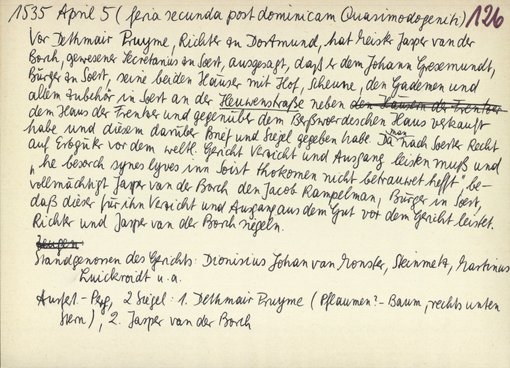 1535 April 5 (feria secunda post dominicam Quasimodogeniti) 126
Vor Dethmair Pruyme, Richter zu Dortmund, hat Meister Jasper van der
Borch, gewesener Secretarius zu Soest, ausgesagt, daß er dem Johann Gresemundt,
Bürger zu Soest, seine beiden Häuser mit Hof, Scheune, den Gademen und
allem Zubehör in Soest an der Heuwenstraße neben den Häusern der Frentzer
dem Haus der Frentzer und gegenüber dem Berßwordeschen Haus verkauft
habe und diesem darüber Brief und Siegel gegeben habe. Da man nach Soester Recht
auf Erbgüter vor dem weltl. Gericht Verzicht und Ausgang leisten muß und
"he besorch synes lyves inn Soist thokomen nicht betrauwet hefft" be-
vollmächtigt Jasper van der Borch den Jacob Rampelman, Bürger in Soest,
daß dieser für ihn Verzicht und Ausgang aus dem Gut vor dem Gericht leistet.
Richter und Jasper van der Borch siegeln.
Zeugen:
Standgenossen des Gerichts: Dionisius Johan van Monster, Steinmetz, Martinus
Luickroidt u.a.
Ausf.-Perg., 2 Siegel: 1. Dethmair Pruyme (Pflaumen?-Baum, rechts unten
Stern), 2. Jasper van der Borch